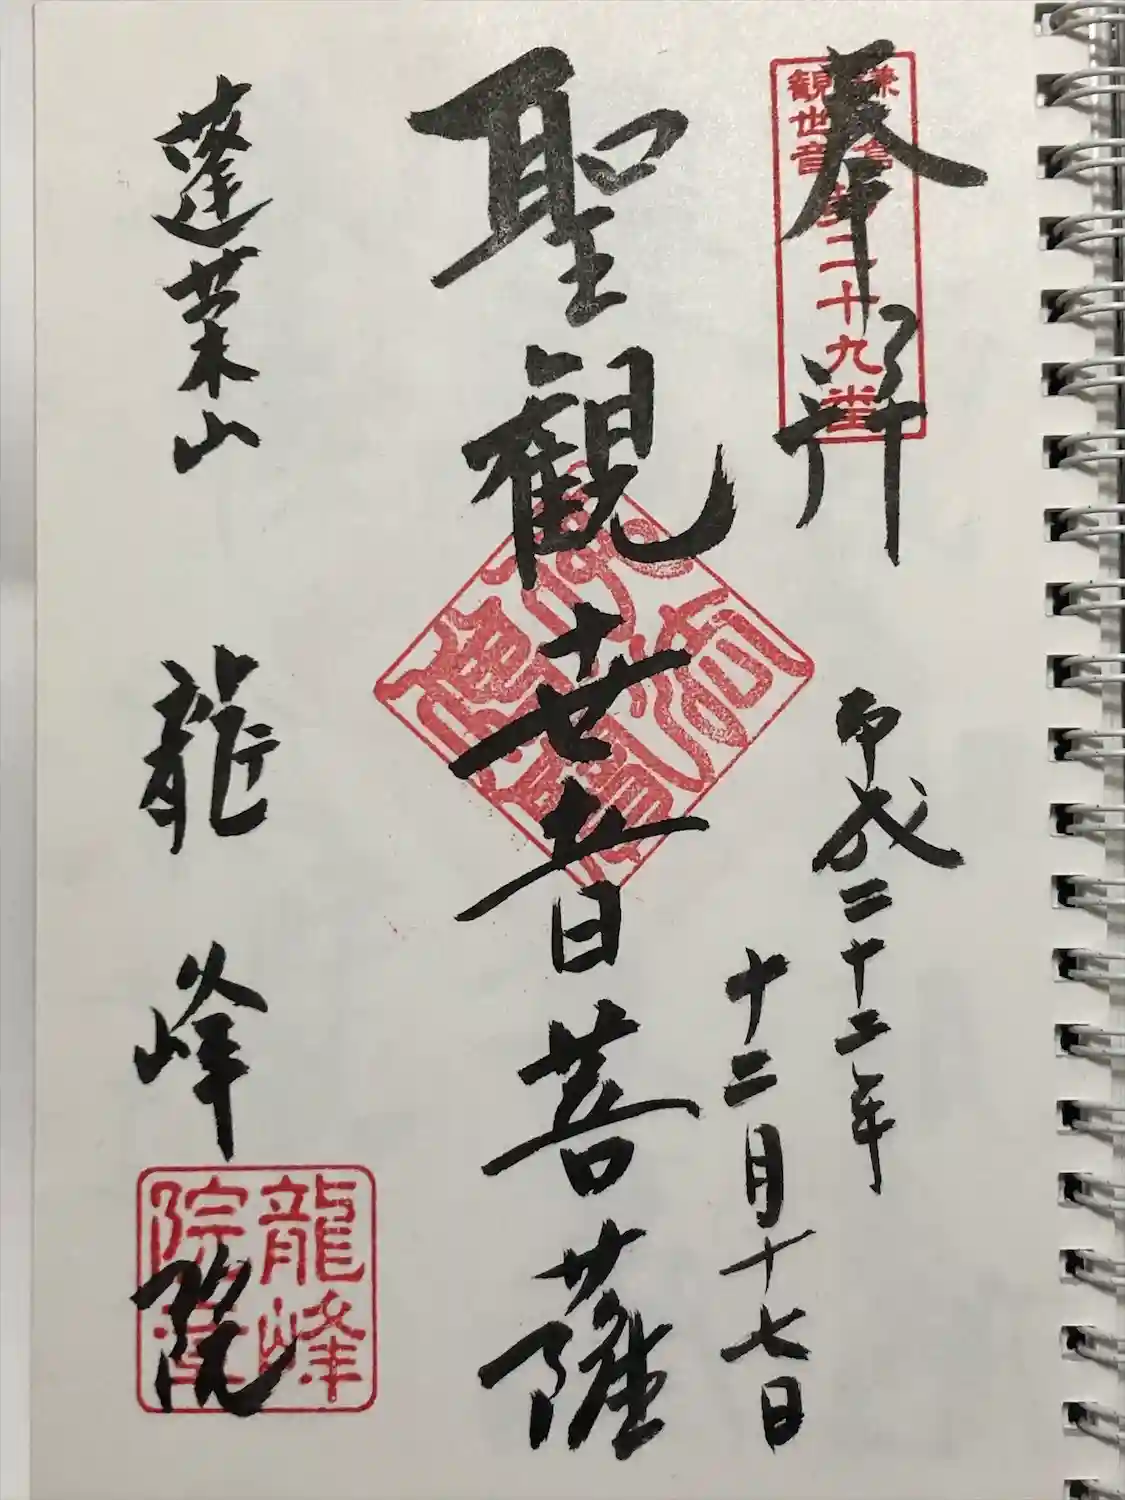 奉拝
鎌倉
観世音
第二十九番
平成二十二年
十二月十七日
聖観世音菩薩
蓬莱山
龍峰院
龍峰
院